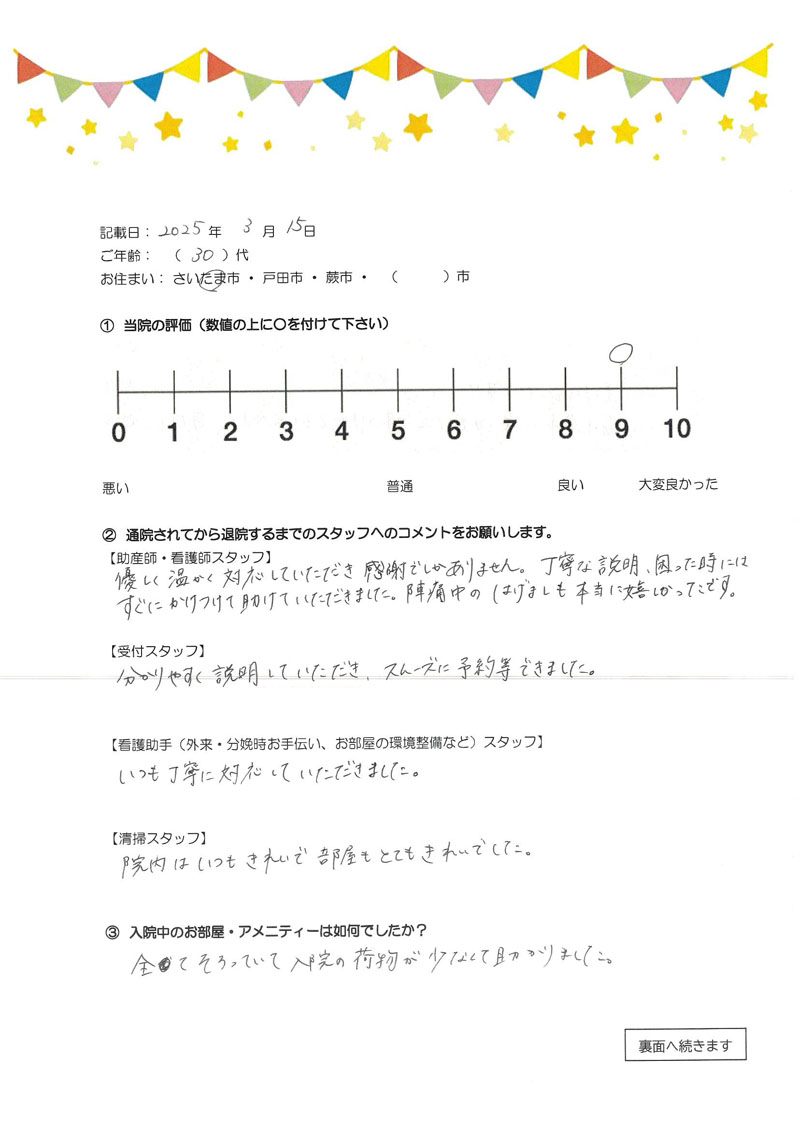 記載日： 2025 年 3 月 15日
ご年齢： （ 30 ）代
お住まい： さいたま市 ・ 戸田市 ・ 蕨市 ・ （ ）市
① 当院の評価（数値の上に〇を付けて下さい）
0 1 2 3 4 5 6 7 8 9 10
悪い 普通 良い 大変良かった
② 通院されてから退院するまでのスタッフへのコメントをお願いします。
【助産師・看護師スタッフ】
優しく温かく対応していただき感謝でしかありません。丁寧な説明、困った時には
すぐにかけつけて助けていただきました。陣痛中のはげましも本当に嬉しかったです。
【受付スタッフ】
分かりやすく説明していただき、スムーズに予約等できました。
【看護助手（外来・分娩時お手伝い、お部屋の環境整備など）スタッフ】
いつも丁寧に対応していただきました。
【清掃スタッフ】
院内はいつもきれいで部屋もとてもきれいでした。
③ 入院中のお部屋・アメニティーは如何でしたか？
全てそろっていて入院の荷物が少なくて助かりました。
裏面へ続きます